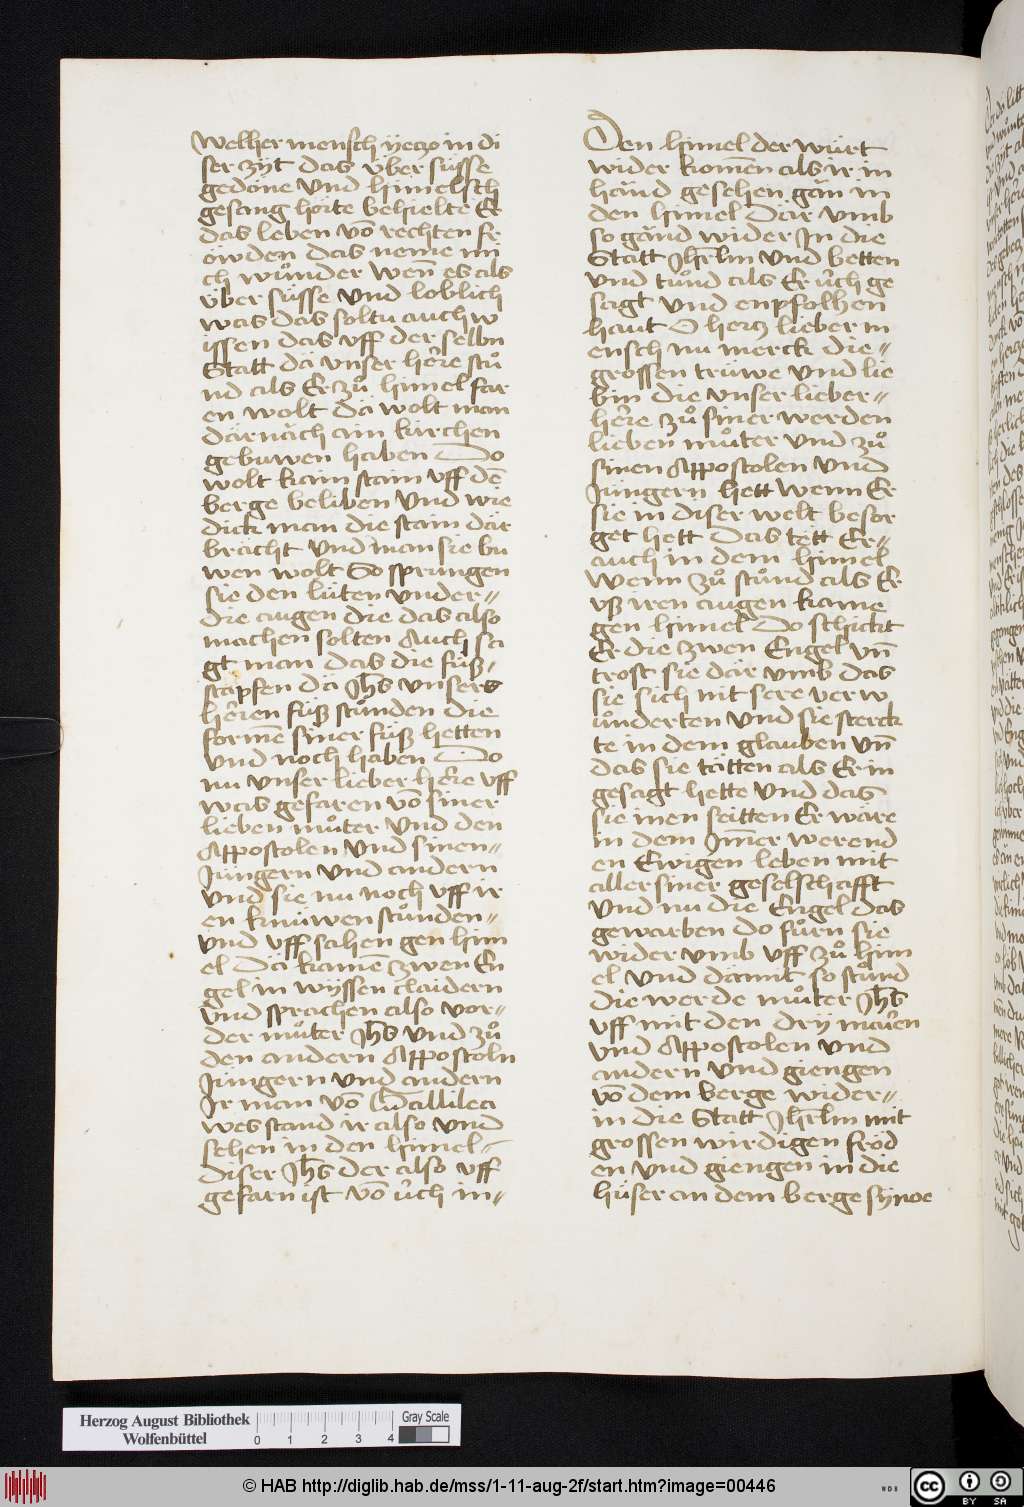 Welher mensch yeczo in di
ser zyt das über süsse
gedöne Vnd himelsch
gesang hörte behielte Er
das leben vō rechten fr
öwden das neme mi
ch wůnder wen̄ es als
über süsse vnd loblich
was das soltu auch w
issen das vff der selbn
Statt dä vnser hēre stů
nd als Er zů himel far
en wolt dä wolt man
därnäch ain kirchen
gebuwen haben Do
wolt kain stain vff dē
berge beliben Vnd wie
dick man die stain där
brächt Vnd man sie bu
wen wolt So sprungen
sie den lüten vnder〃
die augen die das also
machen solten Auch sa
gt man das die füß〃
stapfen dä Jhs vnsers
hēren füß stůnden die
formē siner füß hetten
Vnd noch haben Do
nu vnser lieber hēre vff
was gefaren vō siner
lieben můter Vnd den
Appostolen Vnd sinen〃
Jüngern Vnd andern
Vnd sie nu noch vff ir
en knüwen stůnden〃
Vnd vff sahen gen him
el Dä kamē zwen En
gel in wyssen claidern
Vnd sprachen also vor〃
der můter Jhs Vnd zů
den andern Appostoln
Jüngern Vnd andern
Jr man vō Gallilea
wes stand ir also Vnd
sehen in den himel〃
diser Jhs der also vff
gefarn ist vō üch in〃
Den himel der würt
wider komēn als ir in
händ gesehen gän in
den himel Där vmb
so gänd wider Jn die
Statt Jhrlm Vnd betten
Vnd tůnd als Er üch ge
sagt Vnd enpfolhen
haut O hercz lieber m
ensch nu merck die〃
grossen trüwe Vnd lie
bin die vnser lieber〃
hēre zů siner werden
lieben můter Vnd zů
sinen Appostolen Vnd
Jüngern hett Wenn Er
sie in diser welt besor
get hett Das tett Er〃
auch in dem himel
Wenn zů stůnd als Er
vß iren augen kame
gen himel Do schickt
Er die zwen Engel vn̄
trost sie där vmb das
sie sich nit sere verw
ůnderten Vnd sie sterck
te in dem glauben vn̄
das sie tätten als Er in
gesagt hette Vnd das
sie inen seitten Er wäre
in dem Jmēr werend
en Ewigen leben mit
aller siner geselschafft
Vnd nu die Engel das
gewarben do fůrn sie
wider vmb vff zů him
el Vnd dämit so stůnd
die werde můter Jhs
vff mit den dry mārien
Vnd Appostolen Vnd
andern Vnd giengen
vō dem berge wider〃
in die Statt Jhrlm mit
grossen wirdigen fröd
en Vnd giengen in die
hüser an dem berge synoe
Herzog August Bibliothek
Wolfenbüttel
0 1 2 3 4
Gray Scale
© HAB http://diglib.hab.de/mss/1-11-aug-2f/start.htm?image=00446
WDB
cc BY SA